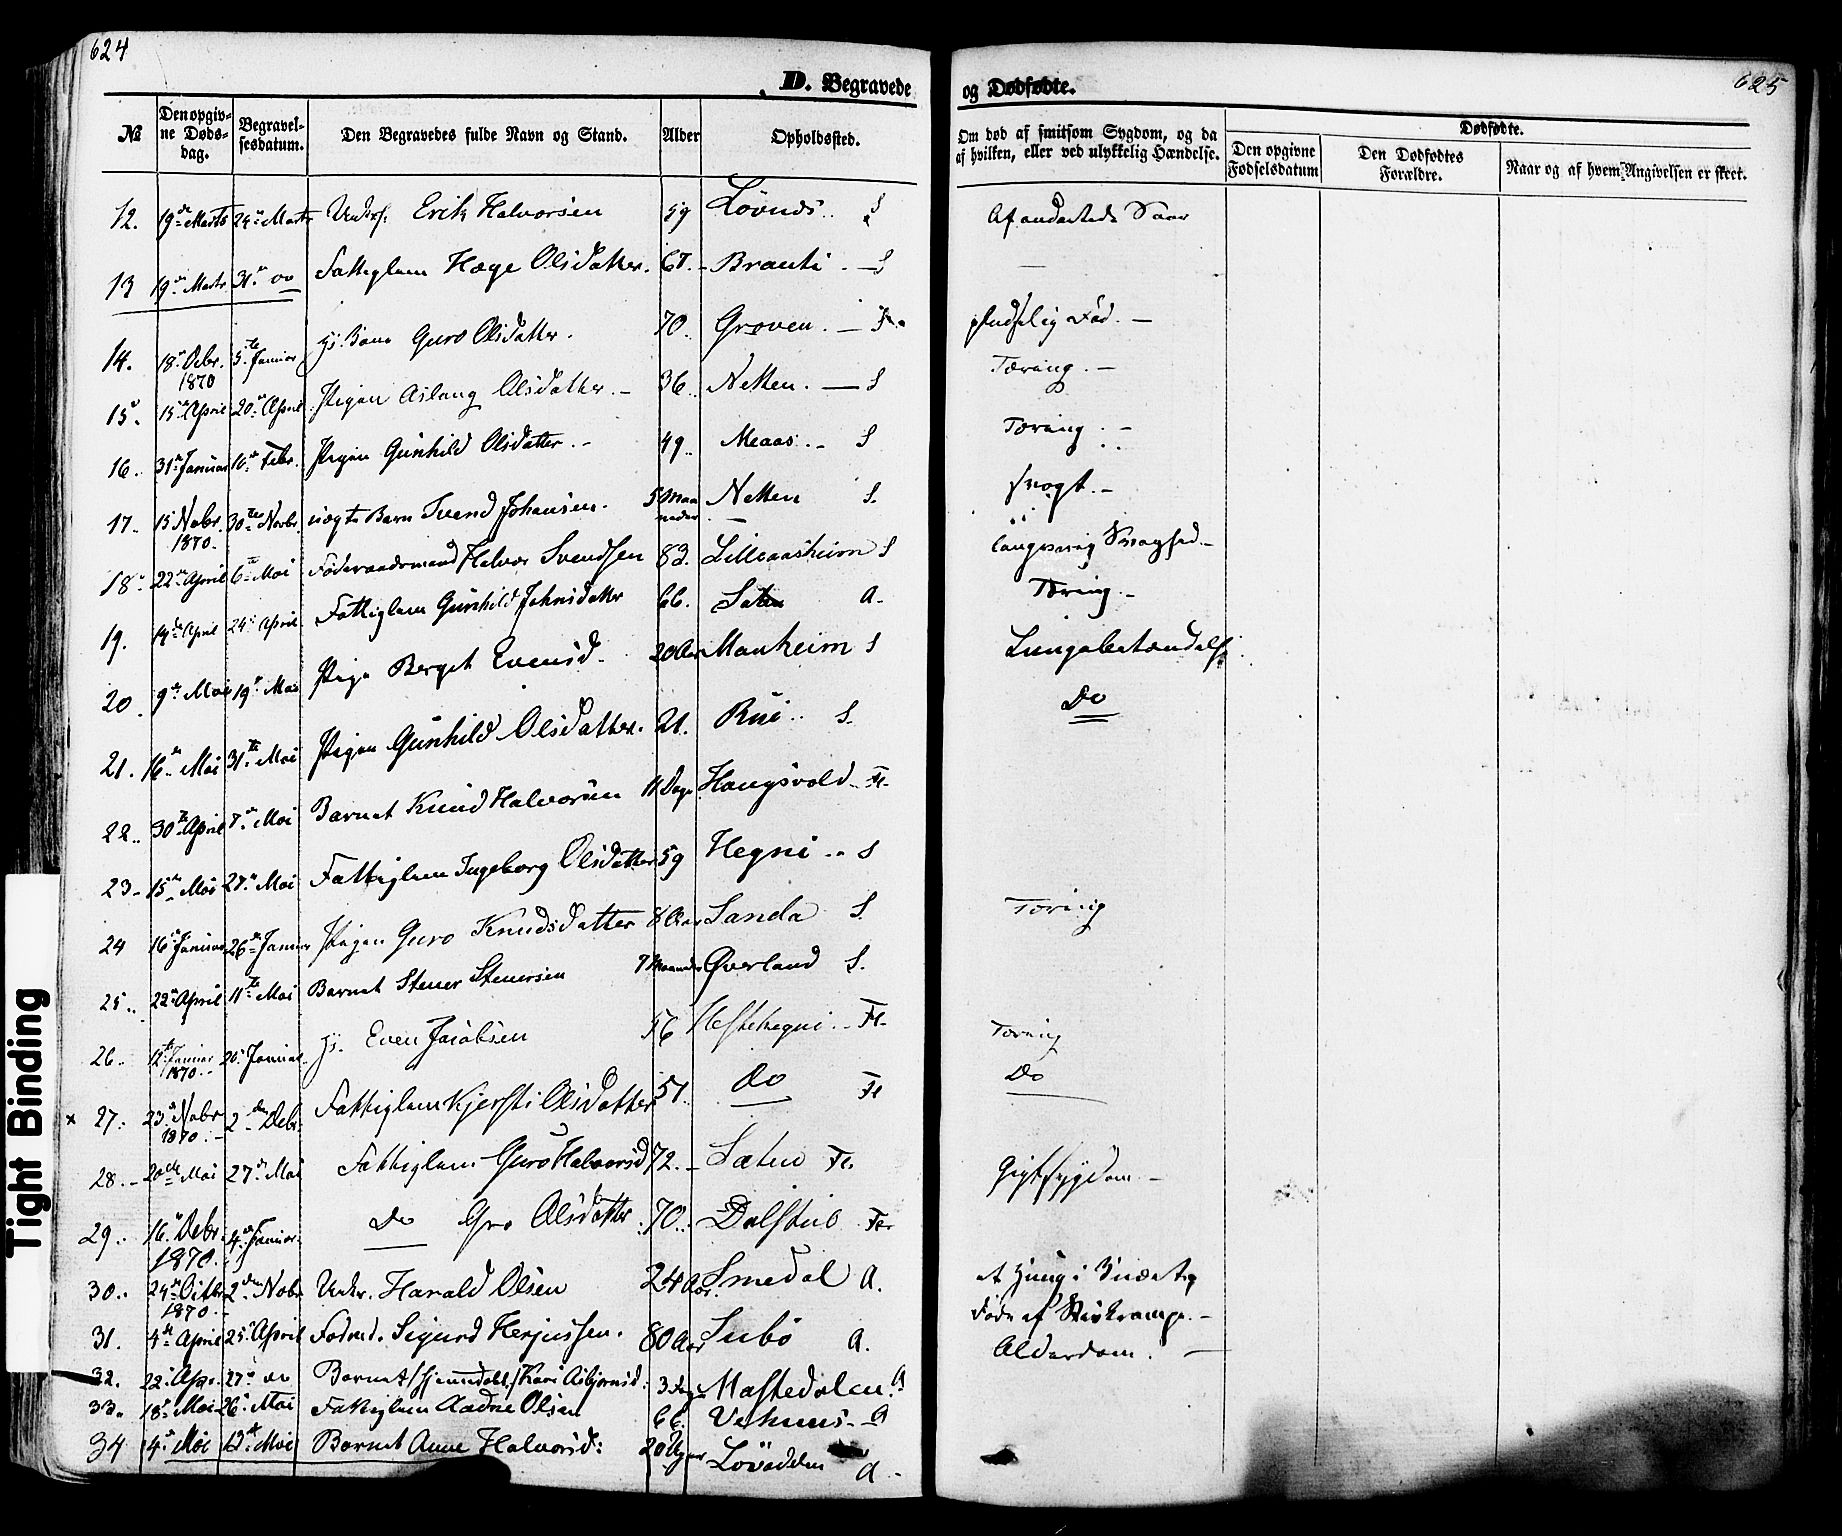 624
D. Begravede
og Dødfødte.
625
№
Den opgivne Dødsdag.
Begravelsesdatum.
Den Begravedes fulde Navn og Stand.
Alder
Opholdssted.
Om død af smitsom Sygdom, og da af hvilken, eller ved ulykkelig Hændelse.
Dødfødte.
Den opgivne Fødselsdatum
Den Dødfødtes Forældre.
Naar og af hvem Angivelsen er skeet.
12. 19de Marts 24de Marts Erik Halvorsen 59 S
13 19de Marts 31te do Fattiglem Hæge Olsdatter. 67. Brauti. S
14. 18de Debr. 1870 5te Januar Guro Olsdatter. 70. Groven. — pludselig Død. —
15. 15de April 20de April Pigen Aslaug Olsdatter. — 36. Netten. — S Tæring. —
16. 31te Januar 10de Febr. Pigen Gunhild Olsdatter. — 49. Meaas. — S Tæring. —
17. 15 Nobr. 1870. 30te Novbr. uægte Barn Svend Johansen. 5 Maaneder Netten S. svagt. —
18. 22de April 6te Mai Føderaadsmand Halvor Svendsen 83. Lilleaasheim S langvarig Svaghed. —
19. 14de April 24de April Fattiglem Gunhild Johnsdatter 66. A. Tæring. —
20. 9de Mai 19de Mai Pige Berget Evensd. 20 Aar Manheim S Lungebetændelse
21. 16de Mai 31te Mai Pigen Gunhild Olsdatter. 21. Rui. S. Do
22. 30te April 7de Mai Barnet Knud Halvorsen 11 Dage Haugsvold. Fl.
23. 15de Mai 27de Mai Fattiglem Ingeborg Olsdatter 59 Hegni S
24 16de Januar 26de Januar Pigen Guro Knudsdatter 8 Aar Sanda S. Tæring
25. 22de April 11te Mai Barnet Stener Stenersen 7 Maaneder Øverland S.
26. 12te Januar 1870. 20. Januar Even Jacobsen 56 Hestehegni. Fl. Tæring
× 27. 23de Nobr 1870. 2den Debr. Fattiglem Kjersti Olsdatter 51. do Fl Do
28. 20de Mai 27de Mai Fattiglem Guro Halvorsd 72. Fl. Gigtsygdom. —
29. 16de Debr. 1870. 4de Januar. Do Gro Olsdatter. 70. Dalstul
30. 24de Octbr 1870. 2den Nobr. Harald Olsen 24 Aar. Smedal A.
31. 4de April 25de April Sigurd Herjussen. 80 Aar A. Alderdom. —
32. 22. Apr. 27de do Barnet /hjemmedøbt/ Kari Asbjørnsd. 3 Dage A
33. 18de Mai 26de Mai Fattiglem Aadne Olsen 66. A
34 4de Mai 12te Mai Barnet Anne Halvorsd: 20 Uger A.
Tight Binding